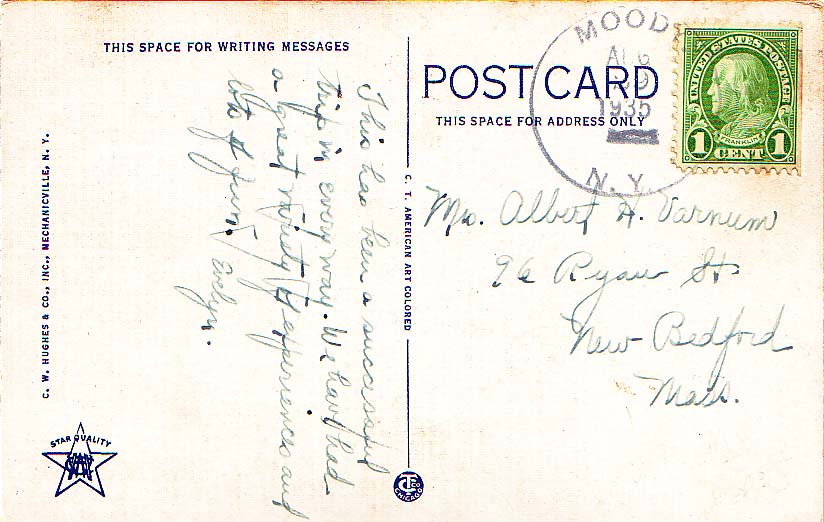 THIS SPACE FOR WRITING MESSAGES
This has been a successful
trip in every way. We have had
a great variety of experiences and
lots of fun.
Evelyn.
C. W. HUGHES & CO., INC., MECHANICVILLE, N. Y.
STAR QUALITY
C. T. AMERICAN ART COLORED
CHICAGO
POST CARD
THIS SPACE FOR ADDRESS ONLY
MOOD
AUG
1935
N. Y.
UNITED STATES POSTAGE
FRANKLIN
1 CENT 1
Mrs. Albert H. Varnum
96 Ryan St
New Bedford
Mass.